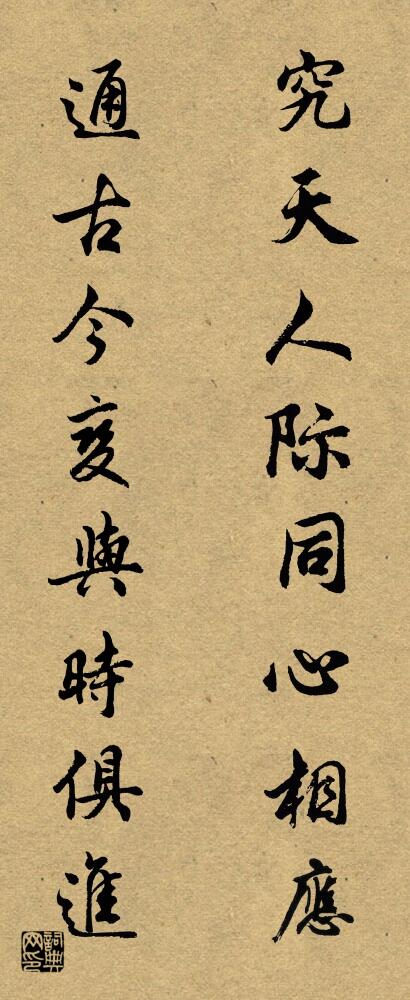 究天人际同心相應
通古今变與時俱進
詞典网印